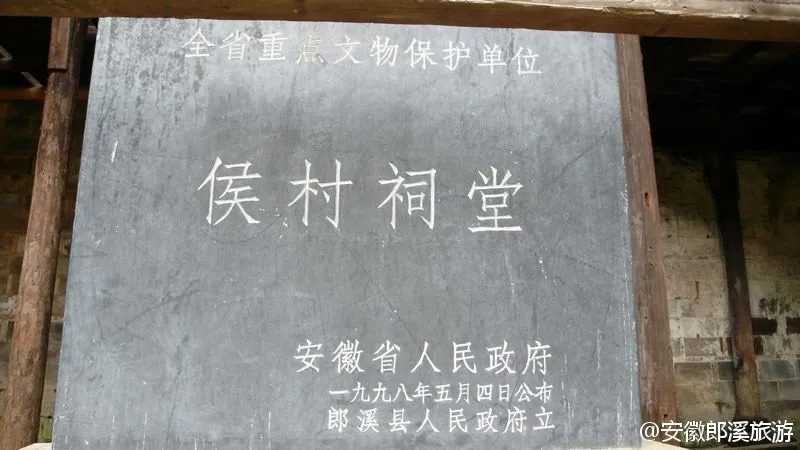 全省重点文物保护单位
侯村祠堂
安徽省人民政府
一九九八年五月四日公布
郎溪县人民政府立
@安徽郎溪旅游